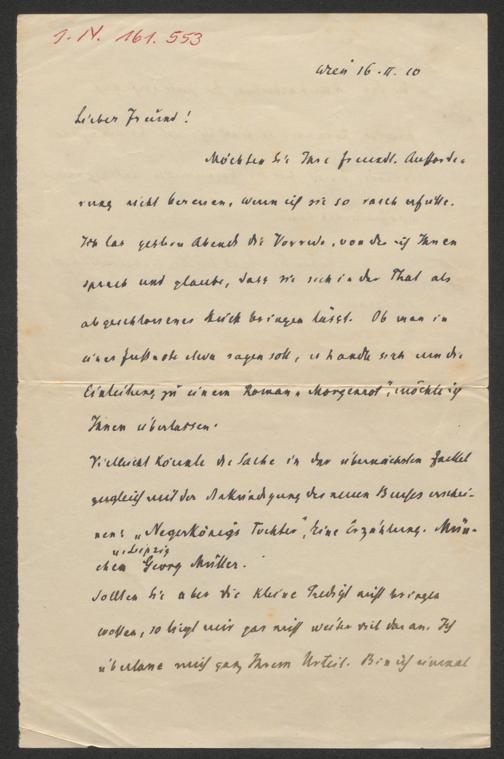 J. N. 161.553
Wien 16. II. 10
Lieber Freund!
Möchten Sie Ihre freundl. Aufforde-
rung nicht bereuen, wenn ich sie so rasch erfülle.
Ich las gestern Abend die Vorrede, von der ich Ihnen
sprach und glaube, dass sie sich in der That als
abgeschlossenes Stück bringen lässt. Ob man in
einer Fußnote etwa sagen soll, es handle sich um die
Einleitung zu einem Roman „Morgenrot“, möchte ich
Ihnen überlassen.
Vielleicht könnte die Sache in der übernächsten Fackel
zugleich mit der Ankündigung des neuen Buches erschei-
nen: „Negerkönigs Tochter“, Eine Erzählung. Mün-
u. Leipzig
chen Georg Müller.
Sollten Sie aber die kleine Predigt nicht bringen
wollen, so liegt mir gar nicht weiter viel daran. Ich
überlasse mich ganz Ihrem Urteil. Bin ich einmal